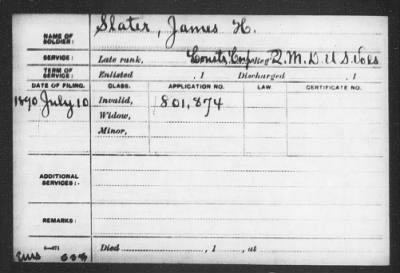 NAME OF SOLDIER: Slater, James H.
SERVICE: Late rank, Constr. Corps Q.M.D. U S Vols
TERM OF SERVICE: Enlisted , 1 Discharged , 1
DATE OF FILING. CLASS. APPLICATION NO. LAW. CERTIFICATE NO.
1890 July 10 Invalid, 801,874
Widow,
Minor,
ADDITIONAL SERVICES:-
REMARKS:
Died , 1 , at